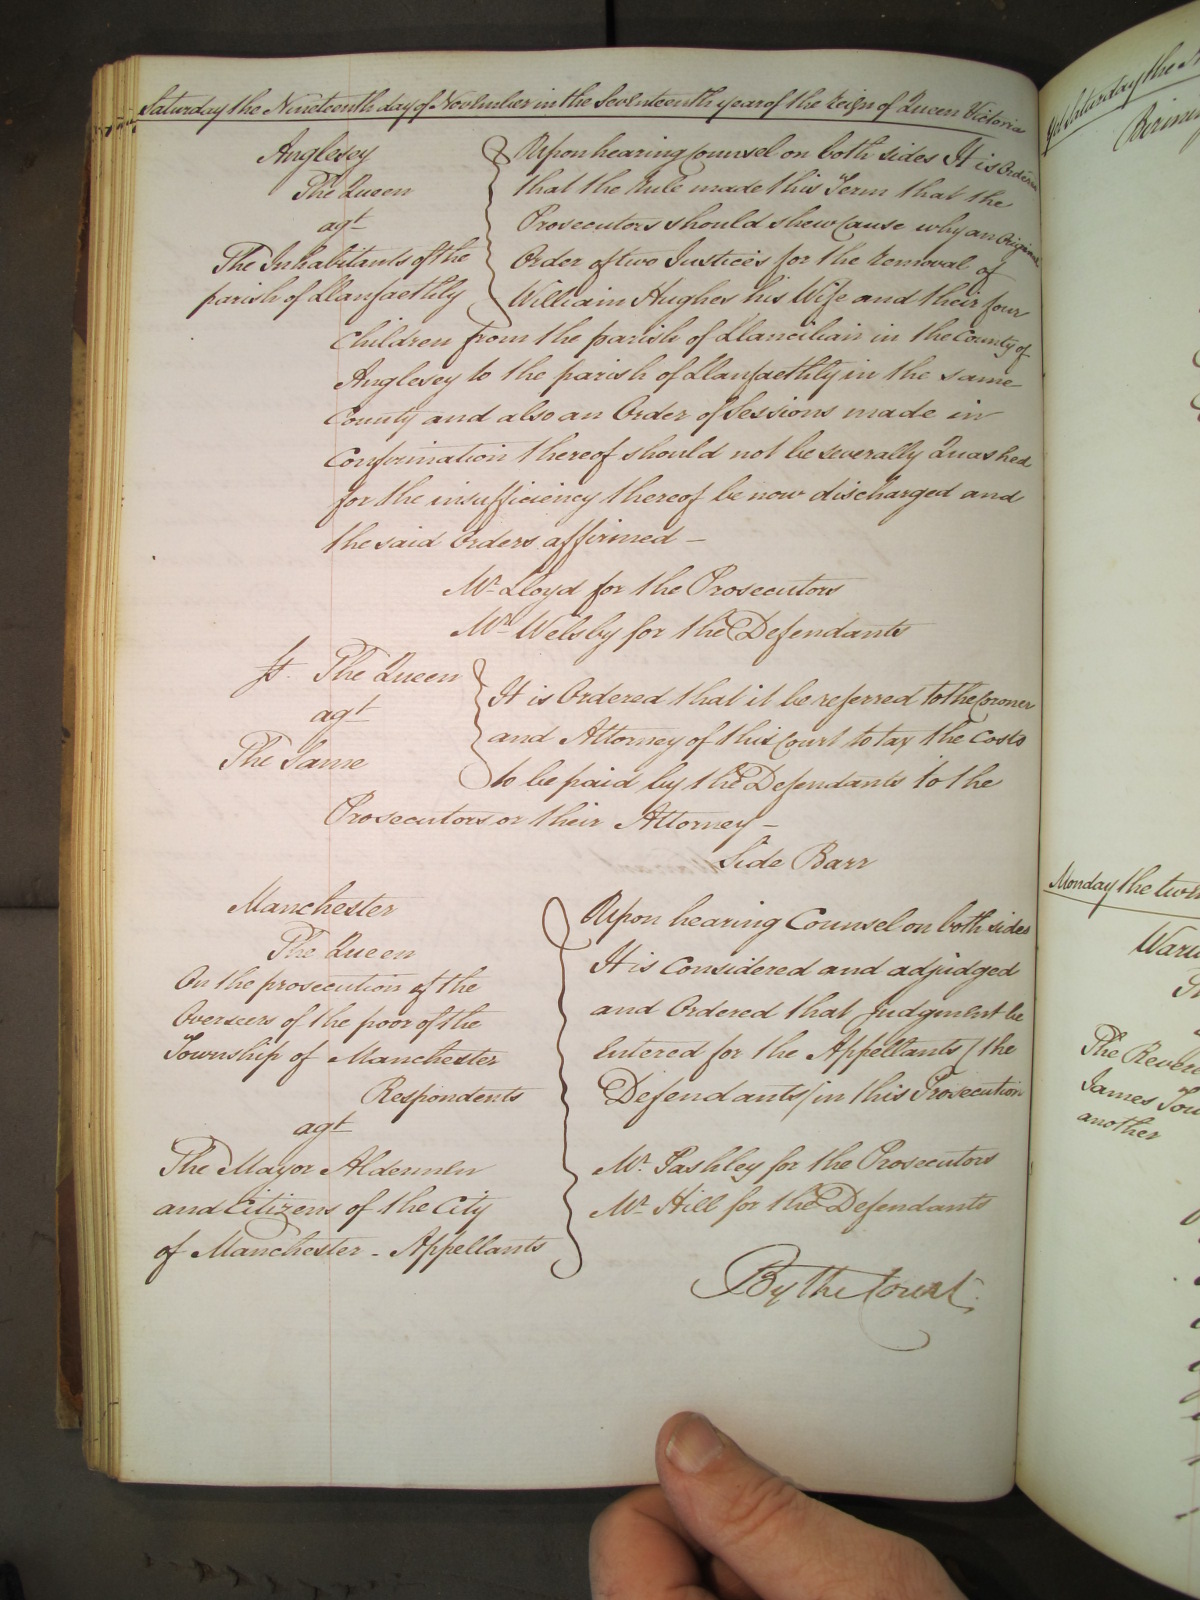 Saturday the Nineteenth day of November in the Seventeenth year of the Reign of Queen Victoria
Anglesey
The Queen
agt
The Inhabitants of the
parish of Llanfaethly
Upon hearing Counsel on both sides It is Ordered
that the Rule made this Term that the
Prosecutors should shew Cause why an Original
Order of two Justices for the Removal of
William Hughes his Wife and their four
Children from the parish of Llaneilian in the County of
Anglesey to the parish of Llanfaethly in the same
County and also an Order of Sessions made in
Confirmation thereof should not be severally Quashed
for the insufficiency thereof be now discharged and
the said Orders affirmed –
Mr Lloyd for the Prosecutors
Mr Welsby for the Defendants
St. The Queen
agt
The Same
It is Ordered that it be referred to the Coroner
and Attorney of this Court to tax the Costs
to be paid by the Defendants to the
Prosecutors or their Attorney –
Side Barr
Manchester
The Queen
On the prosecution of the
Overseers of the poor of the
Township of Manchester
Respondents
agt
The Mayor Aldermen
and Citizens of the City
of Manchester - Appellants
Upon hearing Counsel on both sides
It is Considered and adjudged
and Ordered that Judgment be
Entered for the Appellants (the
Defendants) in this Prosecution
Mr. Pashley for the Prosecutors
Mr Hill for the Defendants
By the Court.
Saturday the
Monday the
The
James
another